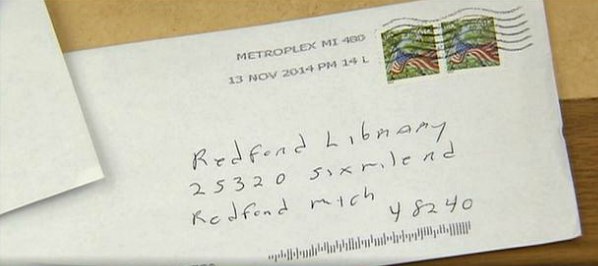 METROPLEX MI 480
13 NOV 2014 PM 14 L
Redford Library
25320 Sixmile rd
Redford mich
48240